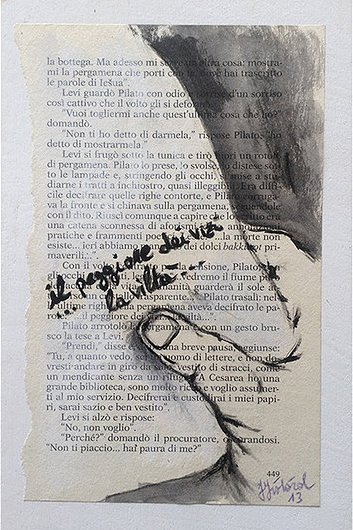 la bottega. Ma adesso mi serve un'altra cosa: mostra-
mi la pergamena che porti con te, dove hai trascritto
le parole di Iešua".
Levi guardò Pilato con odio e sorrise d'un sorriso
così cattivo che il volto gli si deformò.
"Vuoi togliermi anche quest'ultima cosa che ho?"
domandò.
"Non ti ho detto di darmela," rispose Pilato, "ho
detto di mostrarmela."
Levi si frugò sotto la tunica e tirò fuori un rotolo
di pergamena. Pilato lo prese, lo svolse, lo distese sot-
to le lampade e, stringendo gli occhi, si mise a stu-
diarne i tratti a inchiostro, quasi illeggibili. Era diffi-
cile decifrare quelle righe contorte, e Pilato corruga-
va la fronte e si chinava sulla pergamena, scorrendole
con il dito. Riuscì comunque a capire che lo scritto era
una catena sconnessa di aforismi, date, annotazioni
pratiche e frammenti poetici. la morte non
esiste... ieri abbiamo dei dolci bakkurot pri-
maverili..".
Con il volto Pilato
gli occhi, lesse: "Vedremo il fiume
l'umanità guarderà il sole
trasparente Pilato trasalì: nel-
l'ultima riga della pergamena aveva decifrato le pa-
il peggiore dei vizi
... la viltà ...
Pilato arrotolò la pergamena e con un gesto brusco
la tese a Levi.
"Prendi," disse e, dopo una breve pausa, aggiunse:
"Tu, a quanto vedo, sei un uomo di lettere, e non do-
vresti andare in giro da solo, vestito di stracci, come
un mendicante senza un rifugio. A Cesarea ho una
grande biblioteca, sono molto ricco e voglio assumer-
ti al mio servizio. Decifrerai e custodirai i miei papi-
ri, sarai sazio e ben vestito".
Levi si alzò e rispose:
"No, non voglio".
"Perché?" domandò il procuratore, oscurandosi.
"Non ti piaccio... hai paura di me?"
449
13